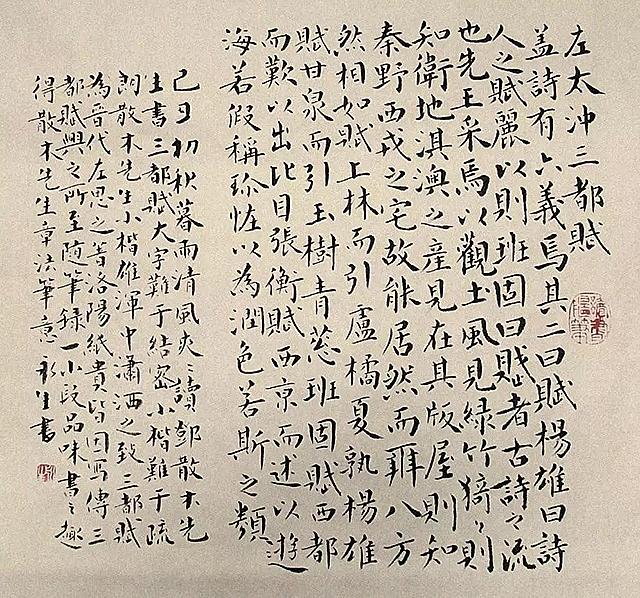 左太沖三都賦
盖詩有六義焉其二曰賦楊雄曰詩
人之賦麗以則班固曰賦者古詩之流
也先王采焉以觀土風見綠竹猗〻則
知衛地淇澳之產見在其版屋則知
秦野西戎之宅故能居然而辨八方
然相如賦上林而引盧橘夏孰楊雄
賦甘泉而引玉樹青葱班固賦西都
而歎以出比目張衡賦西京而述以遊
海若假稱珍怪以為潤色若斯之類
己丑初秋暮雨清風爽〻讀鄧散木先
生書三都賦大字難于結密小楷難于疏
朗散木先生小楷雄渾中瀟洒之致三都賦
為晉代左思之著洛陽紙貴皆因寫傳三
都賦興之所至随筆録一小段品味書之趣
得散木先生章法筆意永生書